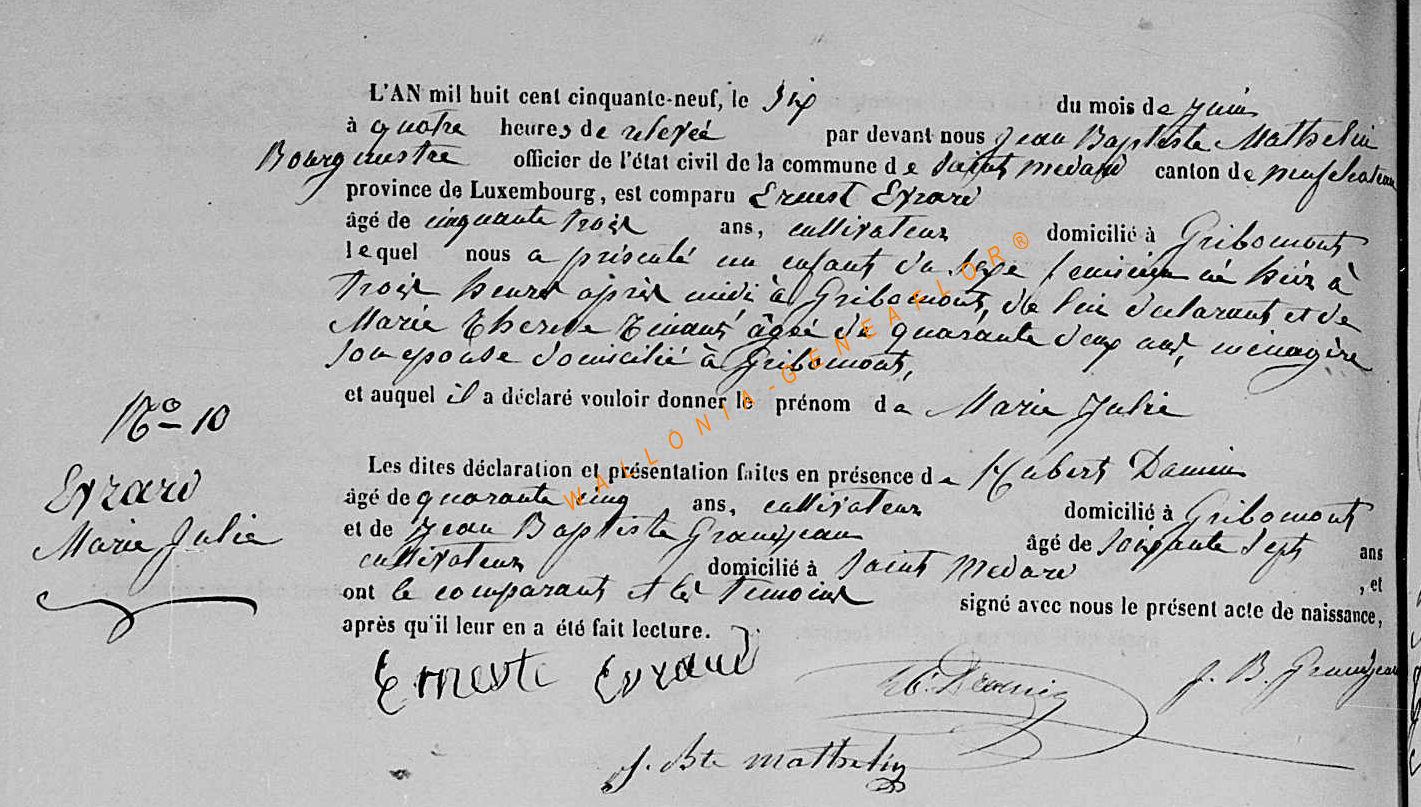 L'AN mil huit cent cinquante-neuf, le Six du mois de Juin
à quatre heures de relevée par devant nous Jean Baptiste Mathelin
Bourgmestre officier de l'état civil de la commune de Saint Medard canton de Neufchateau
province de Luxembourg, est comparu Ernest Evrard
âgé de cinquante trois ans, cultivateur domicilié à Gribomont
lequel nous a présenté un enfant du sexe feminin né hier à
trois heures après midi à Gribomont, de lui déclarant et de
Marie Therese Tinant âgée de quarante deux ans, ménagère
son epouse domicilié à Gribomont,
et auquel il a déclaré vouloir donner le prénom de Marie Julie
N° 10
Les dites déclaration et présentation faites en présence de Hubert Damien
Evrard
âgé de quarante cinq ans, cultivateur domicilié à Gribomont
Marie Julie
et de Jean Baptiste Grandjean âgé de soixante sept ans
cultivateur domicilié à Saint Medard , et
ont le comparant et les temoins signé avec nous le présent acte de naissance,
après qu'il leur en a été fait lecture.
Erneste Evrard
J. B. Grandjean
J. Bte Mathelin
WALLONIA-GENEAFLOR®